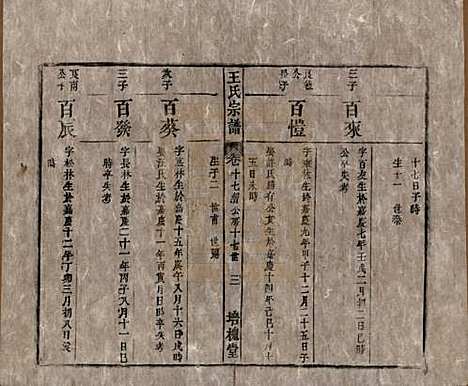 十七日子時
生子一 世榮
三子
百爽
字百友生於嘉慶七年壬戌二月初二日巳時
公卒失考
長子
百愷
字東林生於嘉慶九年甲子十二月二十五日子
時
娶許氏勝有公女生於嘉慶十四年己巳十月十
五日未時
生子二 世甫 世
王氏宗譜
卷十七 公房十七世
三
培槐堂
次子
百葵
字逢林生於嘉慶十五年庚午八月十六日戌時
娶汪氏生於嘉慶十一年丙寅月日時卒失考
三子
百發
字長林生於嘉慶二十一年丙子八月十一日巳
時卒失考
公子
百辰
字松林生於嘉慶十二年丁卯三月初八日辰
時